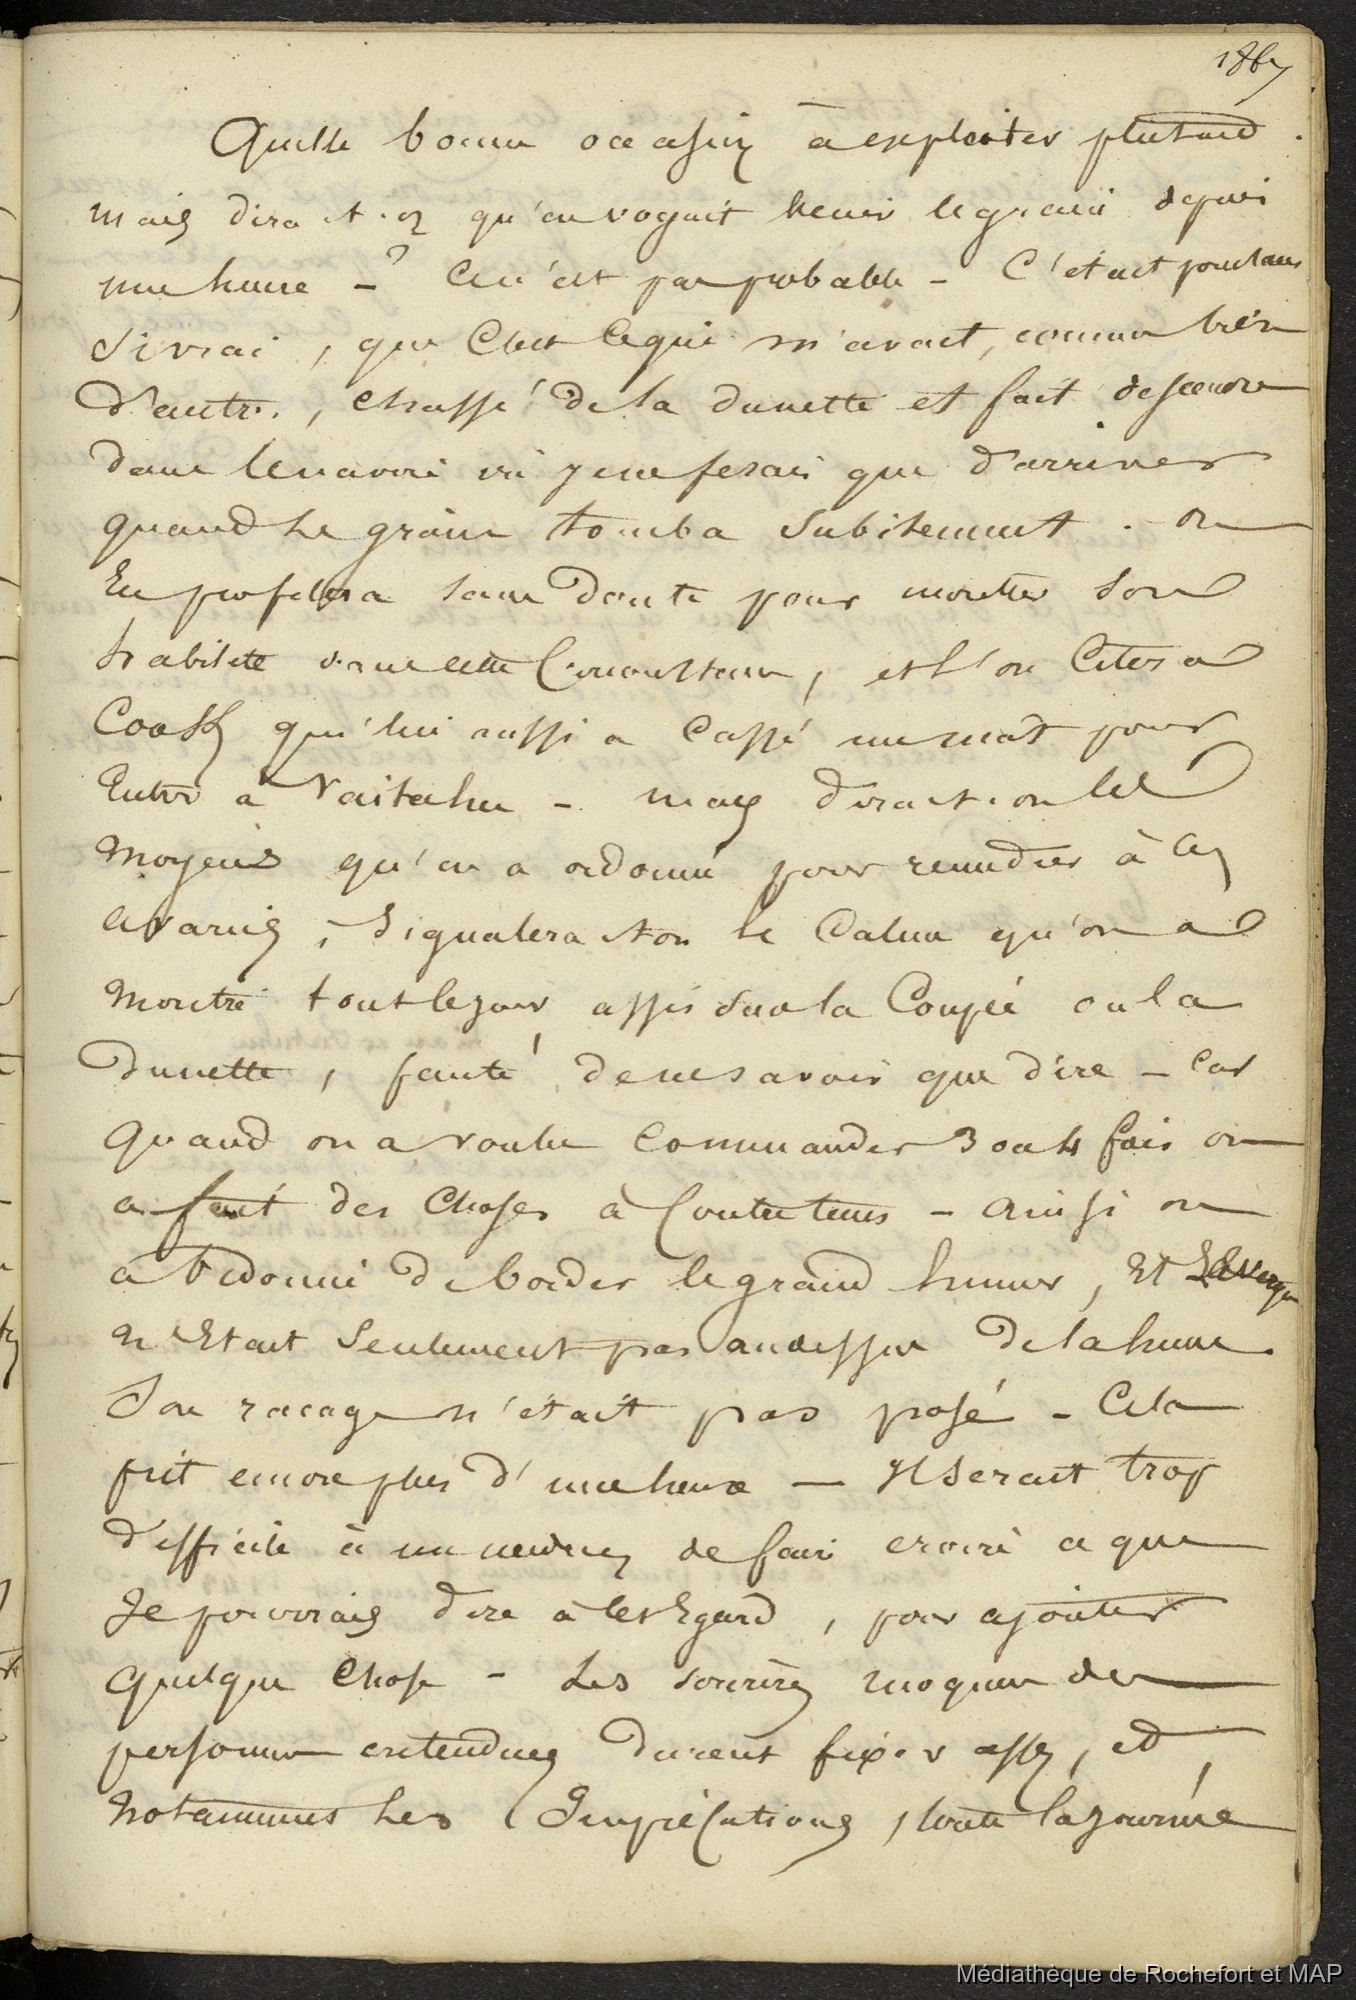 1867
Quelle bonne occasion à exploiter plutard.
mais dira-t-on qu'on voyait venir le grain depuis
une heure - ? Ce n'est pas probable - C'était pourtant
si vrai, que C'est ce qui m'avait, comme bien
d'autres, chassé de la dunette et fait descendre
dans le navire où je ne fesais que d'arriver
quand le grain tomba subitement. on
En profitera sans doute pour montrer son
habileté dans cette Circonstance, et l'on Citera
Cook qu'lui aussi a Cassé un mât pour
Entrer à Vaitahu - mais dira-t-on les
moyens qu'on a ordonné pour remedier à Ces
avaries, Signalera-t-on le Calme qu'on a
montré tout le jour assis sur la Coupée ou la
dunette, faute de ne savoir que dire - Car
Quand on a voulu Commander 3 ou 4 fois on
a fait des Choses à Contretems - ainsi on
a ordonné de border le grand hunier, Et
n'Etait Seulement pas au dessus de la hune
Son racage n'était pas posé - Cela
fut encore plus d'une heure — Il serait trop
difficile à un de faire croire ce que
Je pourrais dire à cet Egard, pour ajouter
Quelque Chose - Les sourires moqueurs des
personnes entendues disent assez, et,
Notamment les Imprécations, toute la journée
Médiathèque de Rochefort et MAP